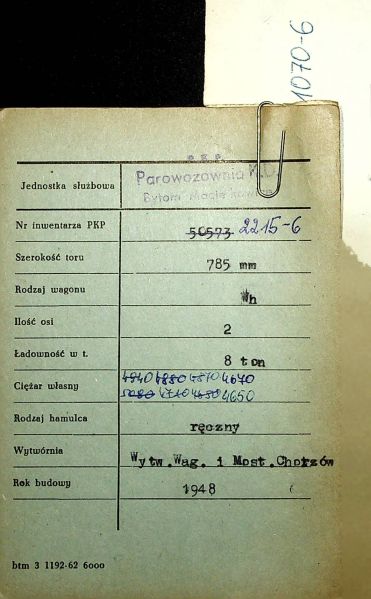 1070-6
P.K.P.
Jednostka służbowa Parowozownia
Bytom
Nr inwentarza PKP 50573 2215-6
Szerokość toru 785 mm
Rodzaj wagonu Wh
Ilość osi 2
Ładowność w t. 8 ton
Ciężar własny 4940 4880 4870 4670
5080 4710 4650
Rodzaj hamulca ręczny
Wytwórnia Wytw.Wag. i Most.Chorzów
Rok budowy 1948
btm 3 1192-62 6000